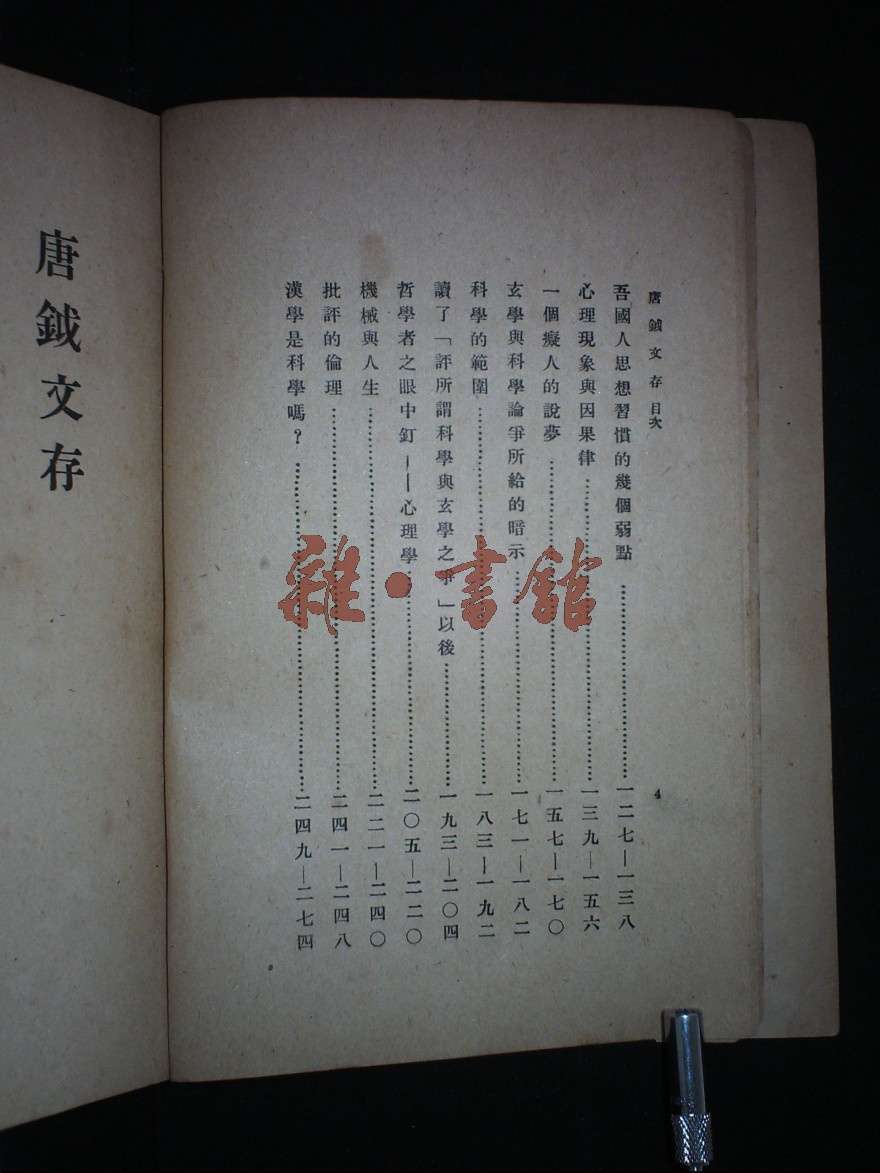 唐鉞文存 目次
4
吾國人思想習慣的幾個弱點…………一二七—一三八
心理現象與因果律…………一三九—一五六
一個癡人的說夢…………一五七—一七〇
玄學與科學論爭所給的暗示…………一七一—一八二
科學的範圍…………一八三—一九二
讀了「評所謂科學與玄學之爭」以後…………一九三—二〇四
哲學者之眼中釘——心理學…………二〇五—二二〇
機械與人生…………二二一—二四〇
批評的倫理…………二四一—二四八
漢學是科學嗎?…………二四九—二七四
唐鉞文存
雜·書館